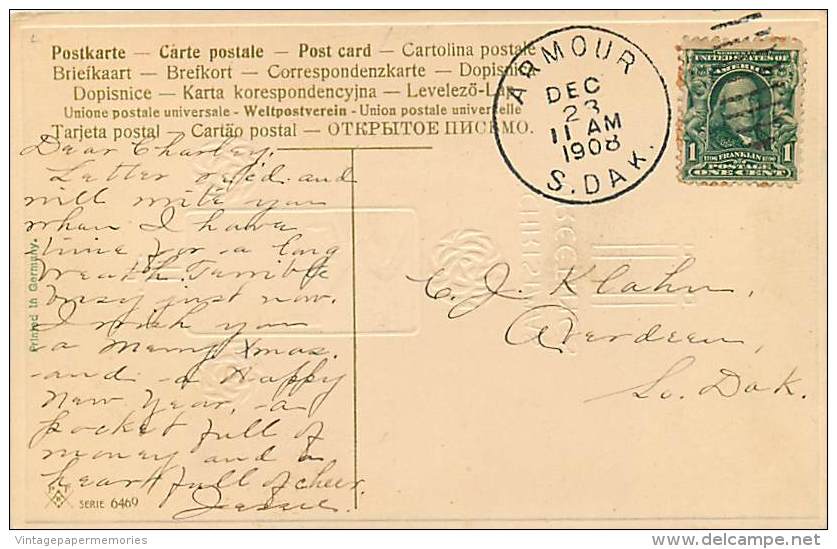 Postkarte — Carte postale — Post card — Cartolina postale
Briefkaart — Brefkort — Correspondenzkarte — Dopisnice
Dopisnice — Karta korespondencyjna — Levelező-Lap
Unione postale universale - Weltpostverein - Union postale universelle
Tarjeta postal — Cartão postal — ОТКРЫТОЕ ПИСЬМО.
ARMOUR
DEC
23
11 AM
1908
S. DAK.
UNITED STATES OF
AMERICA
1 FRANKLIN 1
POSTAGE
ONE CENT
Dear Charley,
Letter rec'd. and
will write you
when I have
time for a long
breath. Terribly
busy just now.
I wish you
a Merry Xmas.
and a Happy
New Year, a
pocket full of
money and a
heart full of cheer.
Jessie.
C. J. Klahn,
Aberdeen,
So. Dak.
Printed in Germany.
SERIE 6469
Vintagepapermemories